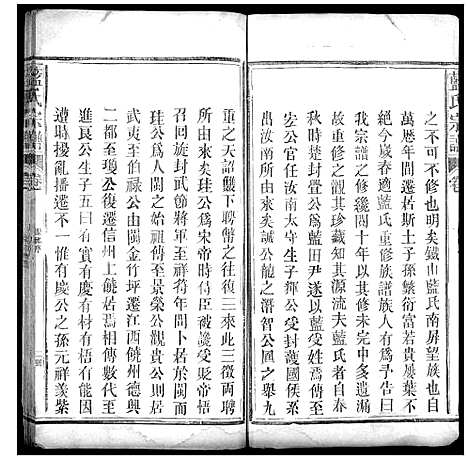 藍氏宗譜 卷
之不可不修也明矣鐵山藍氏南屏望族也自
萬歷年間遷居斯土子孫繁衍若貴屢葉不
絕今歲春適藍氏重修族譜族人有為予告曰
我宗譜之修幾閱十年以其修未完大多遺漏
故重修之觀其珍藏知其源夫藍氏者自春
秋楚封亹公為藍田尹遂以藍受姓焉厥後
安公官任汝南太守生子輝公受封護國侯
出汝南所由來矣誠公龍之潛智公鳳之舉九
重之天詔釁下聘幣之往復三來此三徵兩聘
所由來矣珪公為宋帝時侍臣被讒受貶帝悟
召回旋封武節將軍至祥符年間卜居於閩
珪公為人閩之始祖傳至景榮公觀貴公同
武夷至伯祿公由閩金竹坪遷江西饒州德興
二都至瓊公復遷信州上饒居焉相傳數代至
進良公生子五曰有寅有慶有材有梧有能因
遭時擾亂播遷不一惟有慶公之孫元祥羨紫
藍氏宗譜 卷